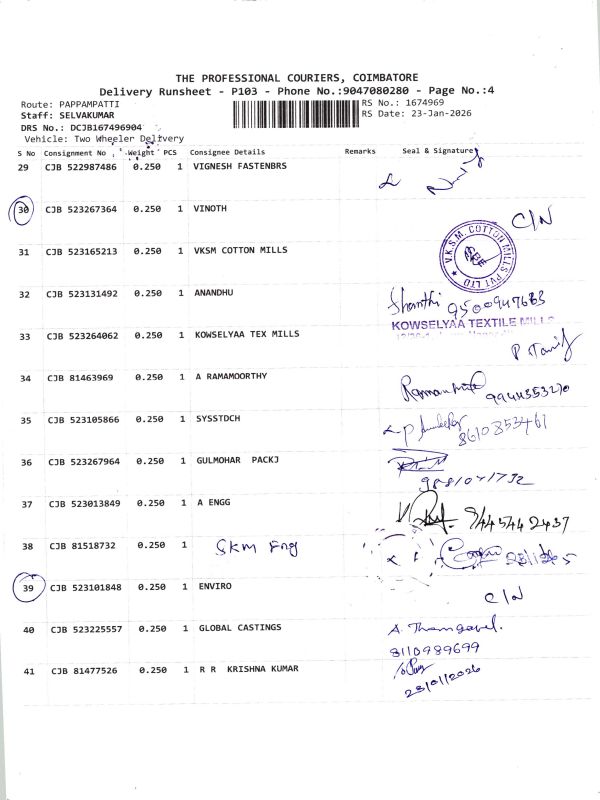 THE PROFESSIONAL COURIERS, COIMBATORE
Delivery Runsheet - P103 - Phone No.:9047080280 - Page No.:4
Route: PAPPAMPATTI
RS No.: 1674969
Staff: SELVAKUMAR
RS Date: 23-Jan-2026
DRS No.: DCJB167496904
Vehicle: Two Wheeler Delivery
S No Consignment No Weight PCS Consignee Details Remarks Seal & Signature
29 CJB 522987486 0.250 1 VIGNESH FASTENBRS
30 CJB 523267364 0.250 1 VINOTH C/N
31 CJB 523165213 0.250 1 VKSM COTTON MILLS V.K.S.M. COTTON MILLS PVT LTD
32 CJB 523131492 0.250 1 ANANDHU Shanthi
33 CJB 523264062 0.250 1 KOWSELYAA TEX MILLS KOWSELYAA TEXTILE MILLS
34 CJB 81463969 0.250 1 A RAMAMOORTHY
35 CJB 523105866 0.250 1 SYSSTDCH 8610853461
36 CJB 523267964 0.250 1 GULMOHAR PACKJ
37 CJB 523013849 0.250 1 A ENGG 9445442437
38 CJB 81518732 0.250 1 SKM Eng
39 CJB 523101848 0.250 1 ENVIRO C/N
40 CJB 523225557 0.250 1 GLOBAL CASTINGS A. Thangavel.
8110989699
41 CJB 81477526 0.250 1 R R KRISHNA KUMAR
23/01/2026